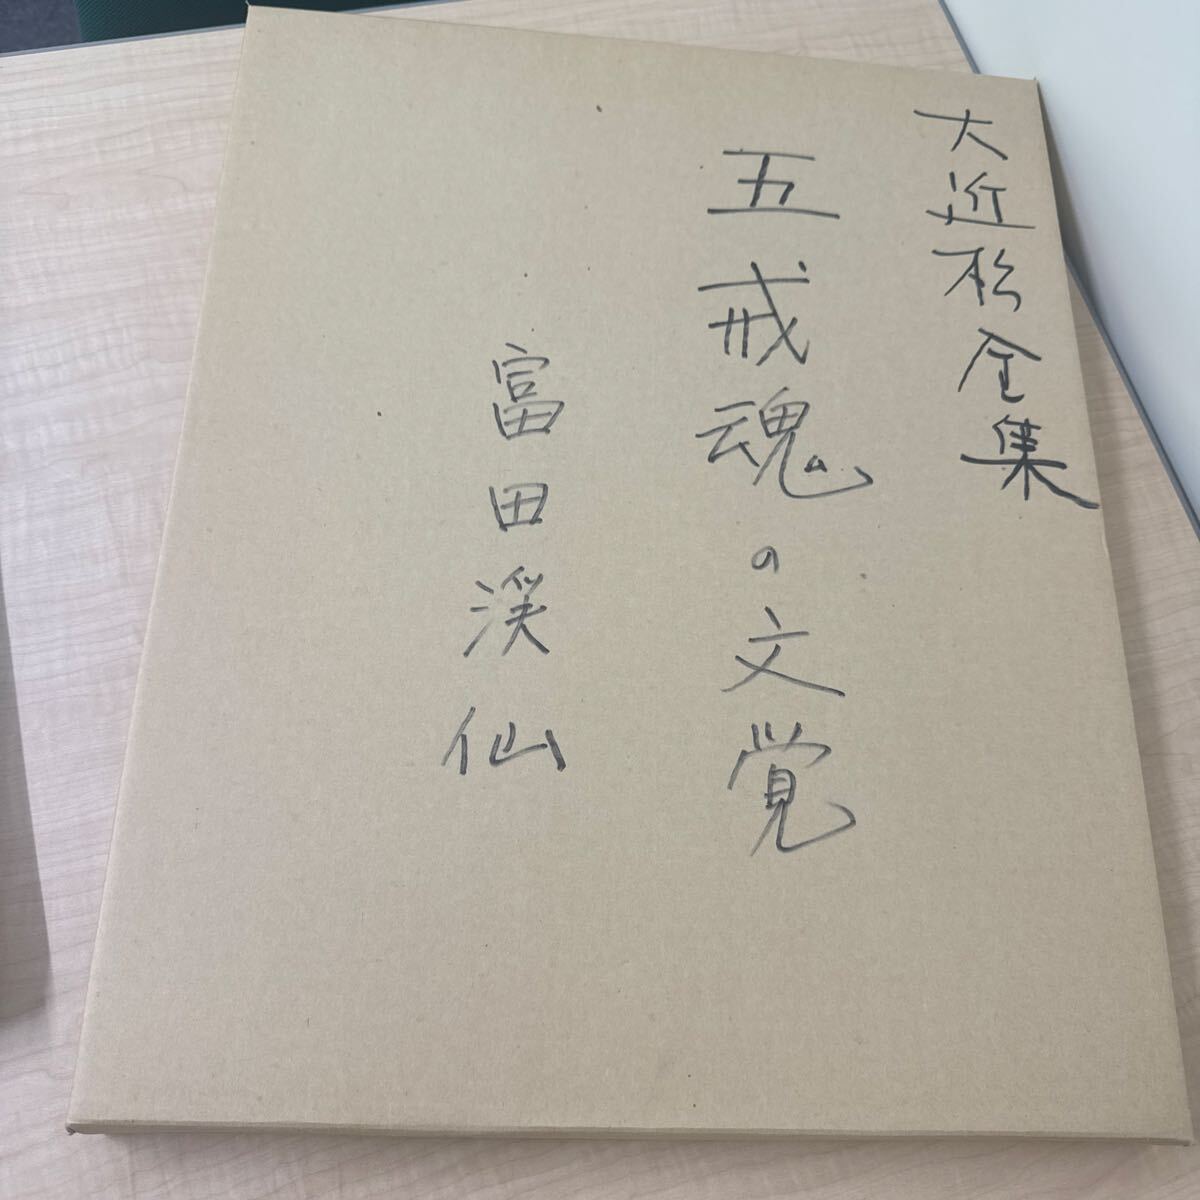 大近松全集
五戒魂の文覚
富田渓仙